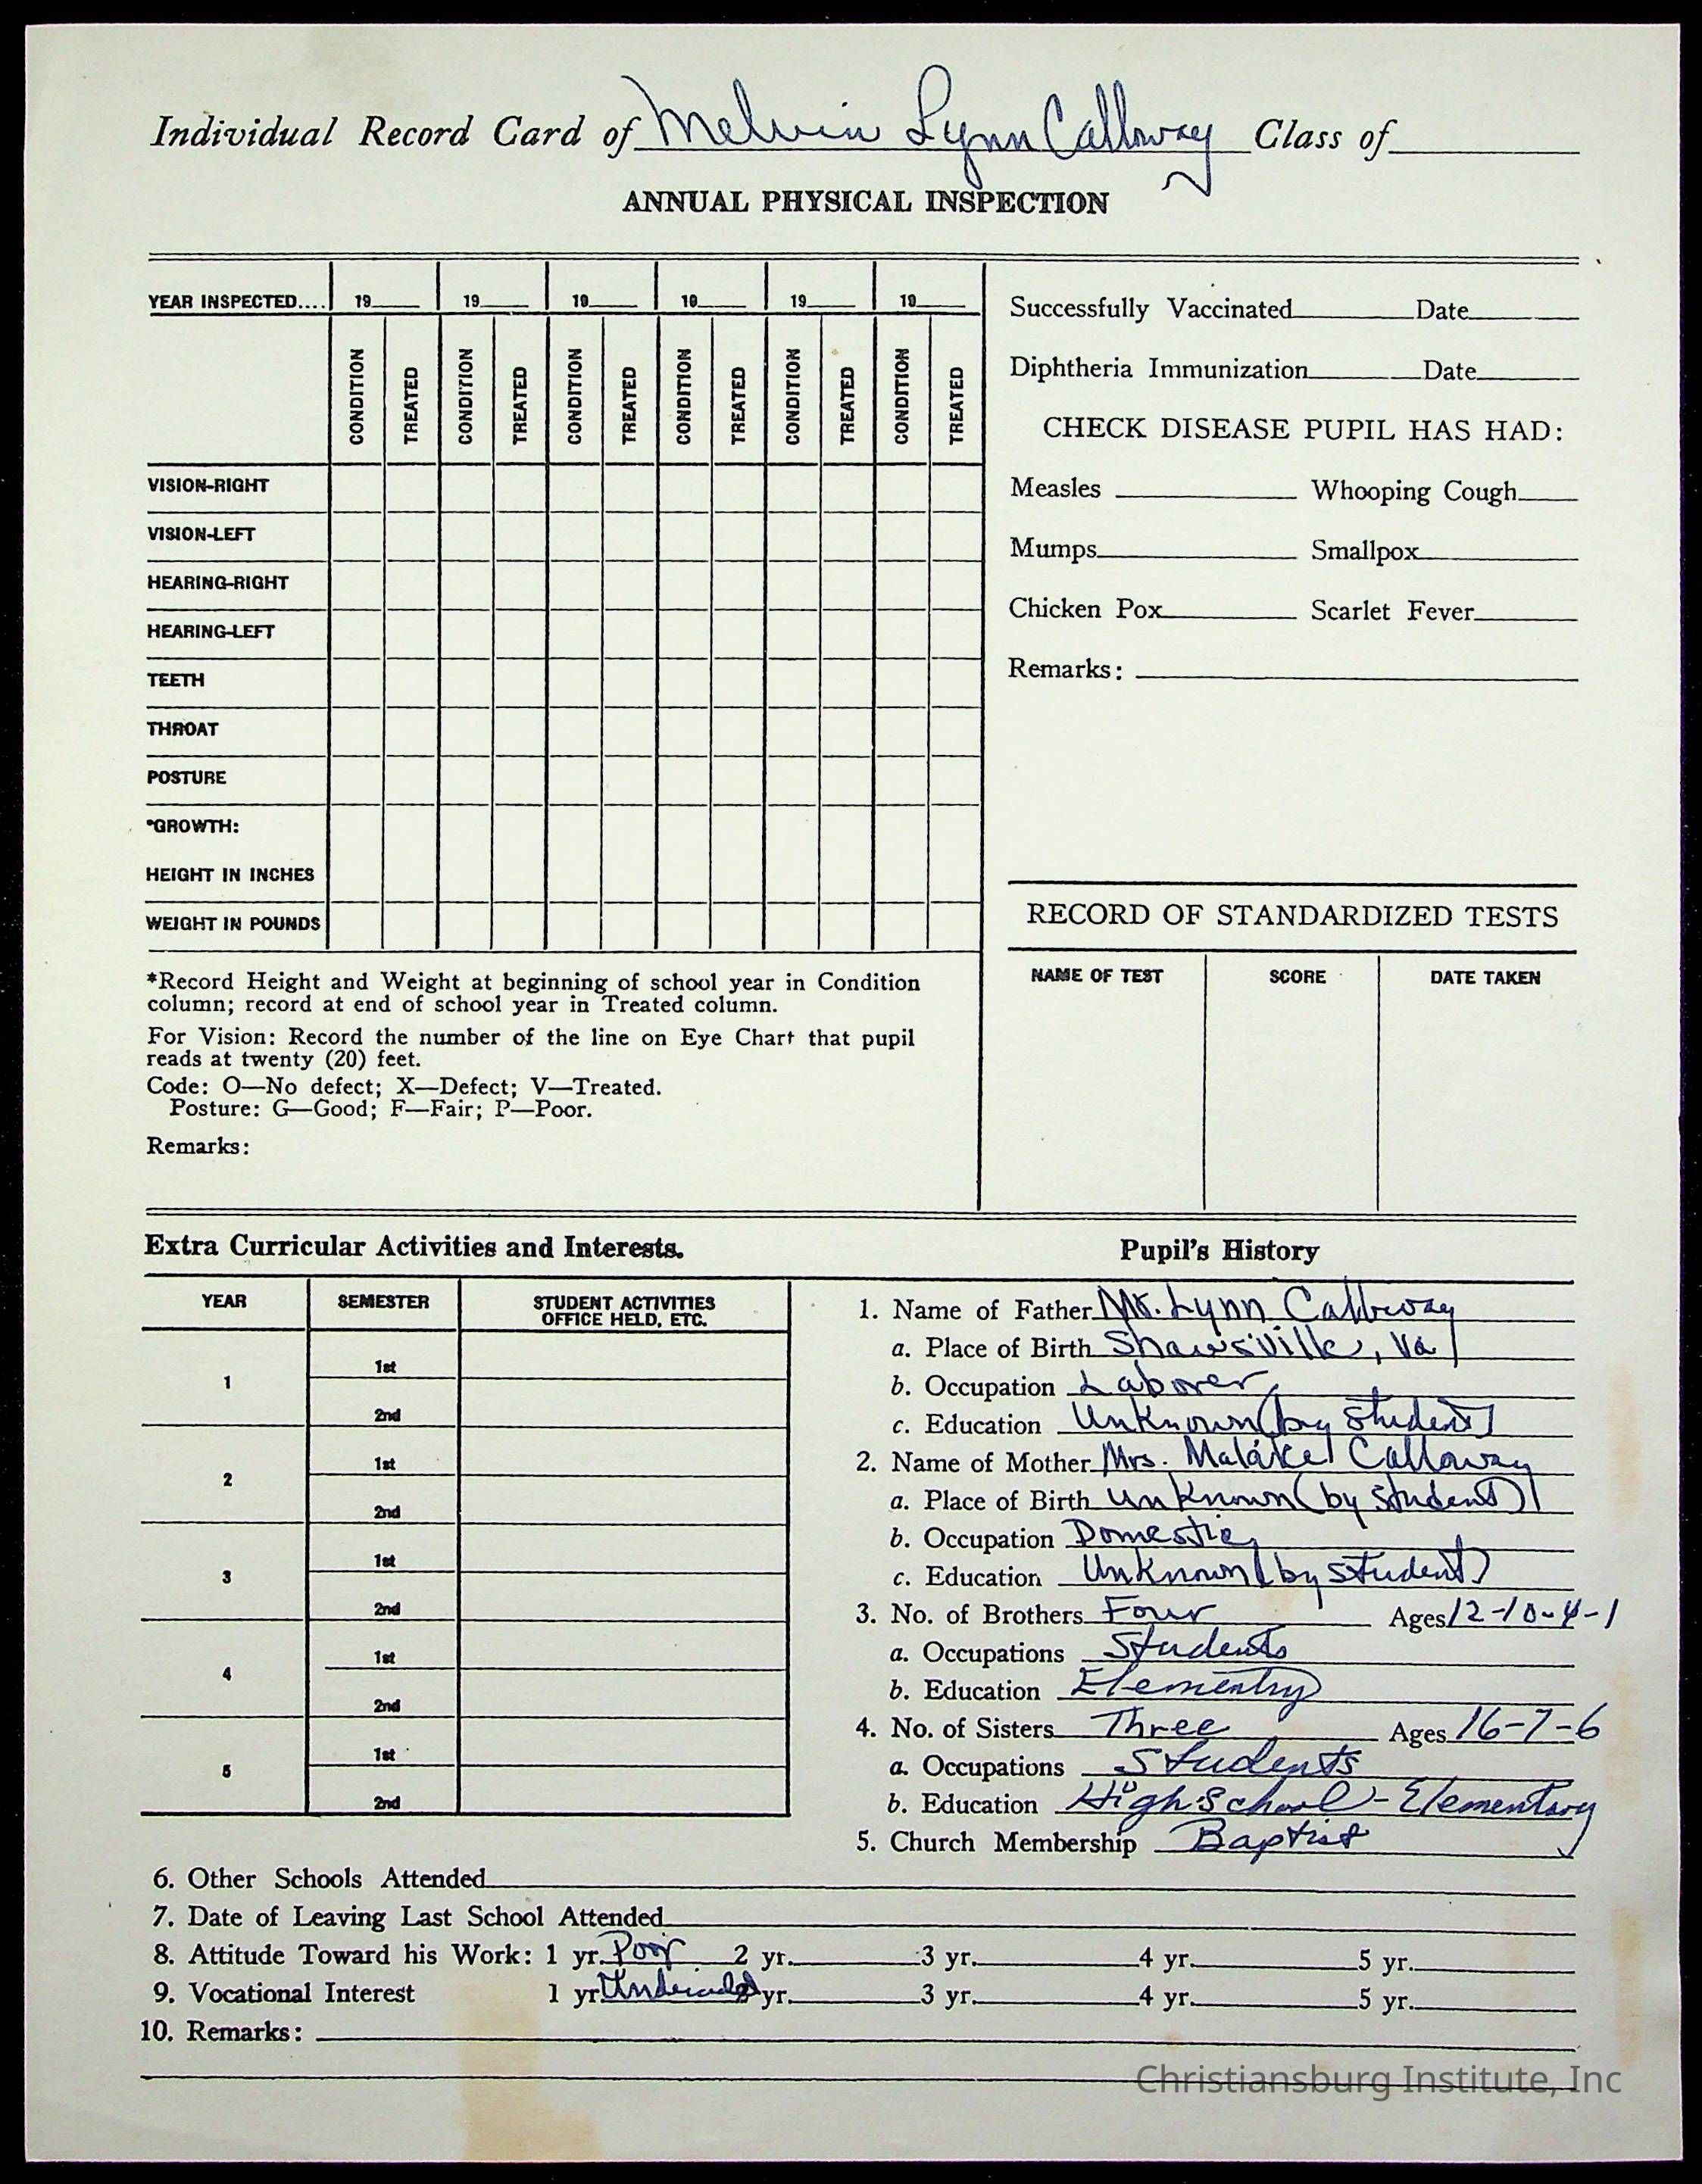 Individual Record Card of Melvin Lynn Calloway Class of
ANNUAL PHYSICAL INSPECTION
YEAR INSPECTED.... 19 19 19 19 19 19
CONDITION TREATED CONDITION TREATED CONDITION TREATED CONDITION TREATED CONDITION TREATED CONDITION TREATED
VISION-RIGHT
VISION-LEFT
HEARING-RIGHT
HEARING-LEFT
TEETH
THROAT
POSTURE
*GROWTH:
HEIGHT IN INCHES
WEIGHT IN POUNDS
*Record Height and Weight at beginning of school year in Condition
column; record at end of school year in Treated column.
For Vision: Record the number of the line on Eye Chart that pupil
reads at twenty (20) feet.
Code: O—No defect; X—Defect; V—Treated.
Posture: G—Good; F—Fair; P—Poor.
Remarks:
Successfully Vaccinated Date
Diphtheria Immunization Date
CHECK DISEASE PUPIL HAS HAD:
Measles Whooping Cough
Mumps Smallpox
Chicken Pox Scarlet Fever
Remarks:
RECORD OF STANDARDIZED TESTS
NAME OF TEST SCORE DATE TAKEN
Extra Curricular Activities and Interests.
YEAR SEMESTER STUDENT ACTIVITIES
OFFICE HELD, ETC.
1 1st
2nd
2 1st
2nd
3 1st
2nd
4 1st
2nd
5 1st
2nd
Pupil's History
1. Name of Father Mr. Lynn Calloway
a. Place of Birth Shawsville, Va
b. Occupation Laborer
c. Education Unknown (by student)
2. Name of Mother Mrs. Calloway
a. Place of Birth Unknown (by student)
b. Occupation Domestic
c. Education Unknown (by student)
3. No. of Brothers Four Ages 12-10-4-1
a. Occupations Students
b. Education Elementry
4. No. of Sisters Three Ages 16-7-6
a. Occupations Students
b. Education High School - Elementary
5. Church Membership Baptist
6. Other Schools Attended
7. Date of Leaving Last School Attended
8. Attitude Toward his Work: 1 yr. Poor 2 yr. 3 yr. 4 yr. 5 yr.
9. Vocational Interest 1 yr. Undecided yr. 3 yr. 4 yr. 5 yr.
10. Remarks:
Christiansburg Institute, Inc